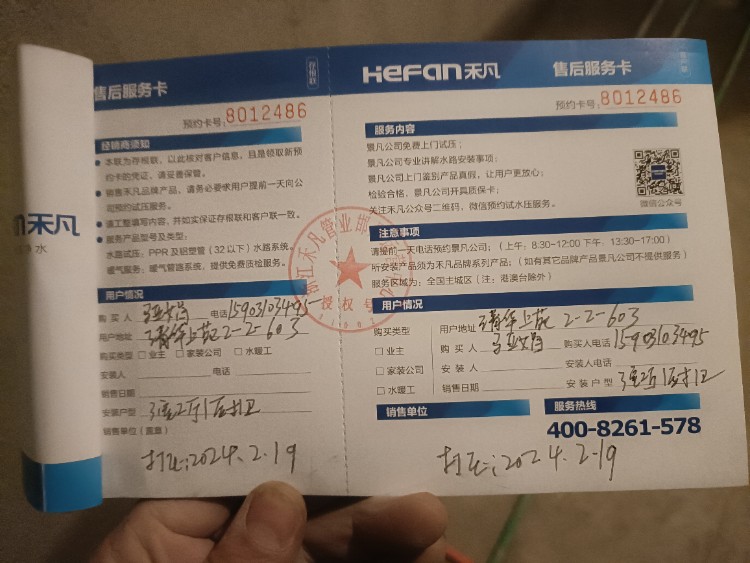 售后服务卡
存根联
预约卡号:8012486
经销商须知
本联为存根联,以此核对客户信息,且是领取新预
约卡的凭证,请妥善保管。
销售禾凡品牌产品,请务必要求用户提前一天向公
司预约试压服务。
请工整填写内容,并如实保证存根联和客户联一致。
服务产品型号及类型:
水路试压:PPR及铝塑管(32以下)水路系统。
暖气服务:暖气管路系统,提供免费质检服务。
用户情况
购买人 电话 15903103495
用户地址 清华上苑2-2-603
购买类型 □ 业主 □ 家装公司 □ 水暖工
安装人 电话
销售日期
安装户型
销售单位(盖章)
打压:2024.2.19
n禾凡
净水
HeFan禾凡
售后服务卡
预约卡号:8012486
服务内容
景凡公司免费上门试压;
景凡公司专业讲解水路安装事项;
景凡公司上门鉴别产品真假,让用户更放心;
检验合格,景凡公司开具质保卡;
关注禾凡公众号二维码,微信预约试水压服务。
微信公众号
注意事项
请提前一天电话预约景凡公司;(上午:8:30-12:00 下午:13:30-17:00)
所安装产品须为禾凡品牌系列产品;(如有其它品牌产品景凡公司不提供服务)
服务区域为:全国主城区(注:港澳台除外)
用户情况
购买类型
□ 业主
□ 家装公司
□ 水暖工
用户地址 清华上苑 2-2-603
购买人 购买人电话 15903103495
安装人 安装人电话
销售日期 安装户型
销售单位
服务热线
400-8261-578
打压:2024.2-19
授权号